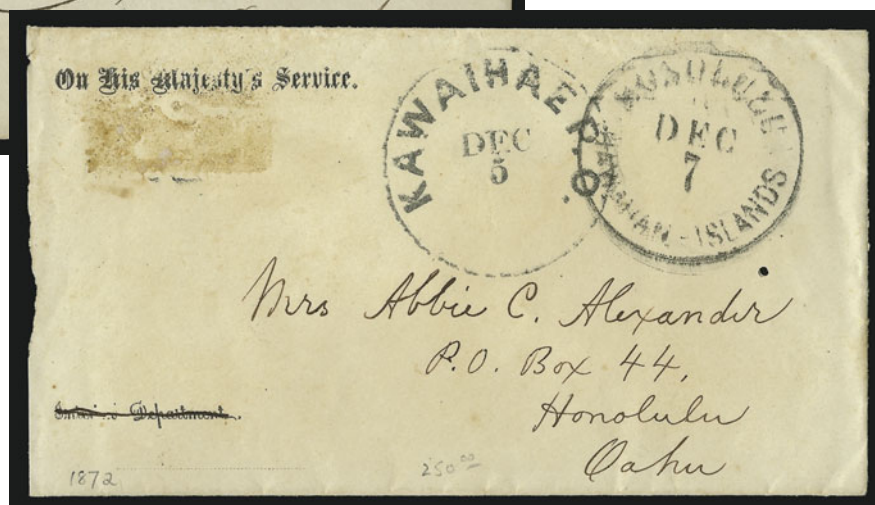 On His Majesty's Service.
KAWAIHAE P.O.
DEC
5
HONOLULU
DEC
7
HAWAIIAN-ISLANDS
Mrs Abbie C. Alexander
P.O. Box 44,
Honolulu
Oahu
Interior Department.
1872
250.00